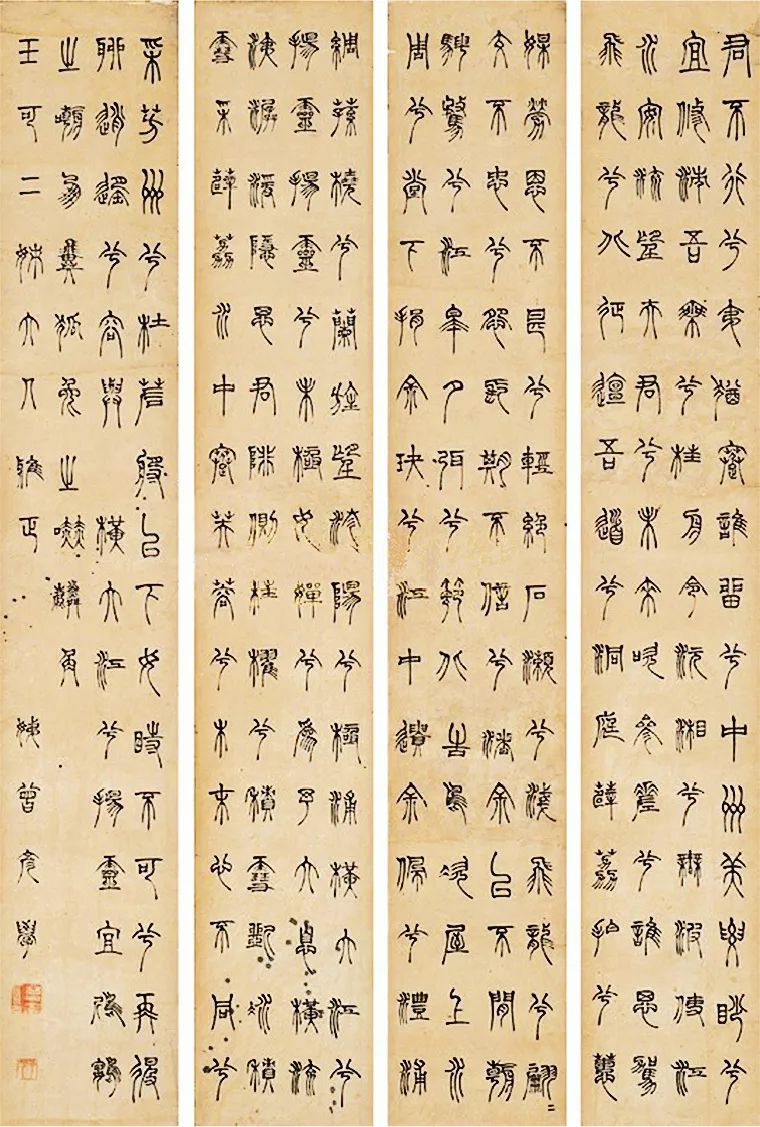 君不行兮夷猶蹇誰留兮中州美要眇兮
宜修沛吾乘兮桂舟令沅湘兮無波使江
水安流望夫君兮未來吹參差兮誰思駕
飛龍兮北征邅吾道兮洞庭薜荔拍兮蕙
媒勞恩不甚兮輕絕石瀨兮淺飛龍兮翩〻
交不忠兮怨長期不信兮告余以不閒朝
騁騖兮江皋夕弭兮節北渚鳥次屋上水
周兮堂下捐余玦兮江中遺余佩兮澧浦
綢蓀橈兮蘭旌望涔陽兮極浦橫大江兮
揚靈揚靈兮未極女嬋兮為予大息橫流
涕潺湲隱思君陫側桂櫂兮積雪斲冰積
雪采薜荔水中搴芙蓉兮木末心不同兮
采芳洲兮杜若以下女時不可兮再得
聊逍遙兮容與橫大江兮揚靈宜鴟鴞
之嘲翼狐兔之
王可二妹大人雅正 姨曾彥學